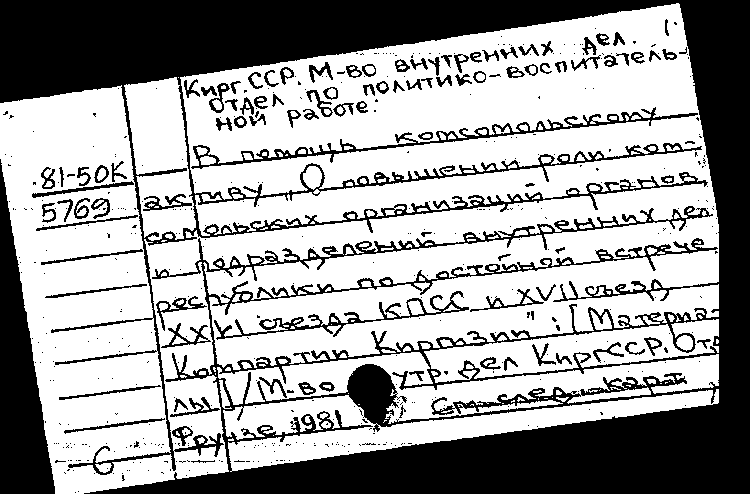 Кирг. ССР. М-во внутренних дел.
Отдел по политико-воспитатель-
ной работе.
В помощь комсомольскому
81-50К
5769
активу „О повышении роли ком-
сомольских организаций органов
и подразделений внутренних дел
республики по достойной встрече
XXVI съезда КПСС и XVII съезд
Компартии Киргизии" : [Материа-
лы] / М-во утр. дел КиргССР. Отд
Фрунзе, 1981
См. след. карт
6